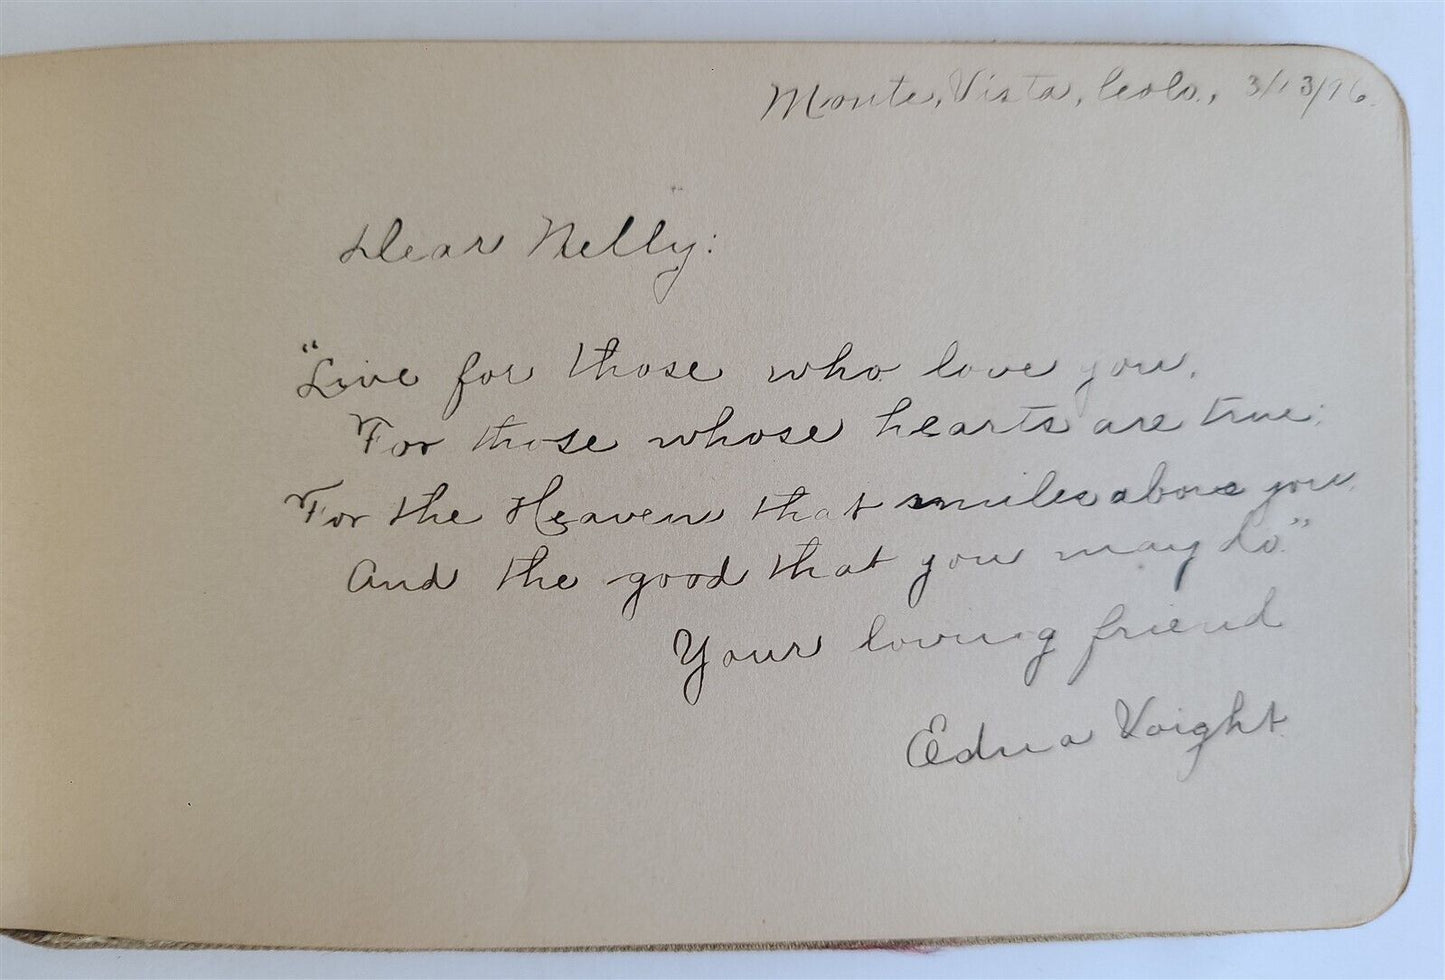 Monte, Vista, Colo., 3/13/96.
Dear Nelly:
"Live for those who love you,
For those whose hearts are true;
For the Heaven that smiles above you,
And the good that you may do."
Your loving friend
Edna Voight